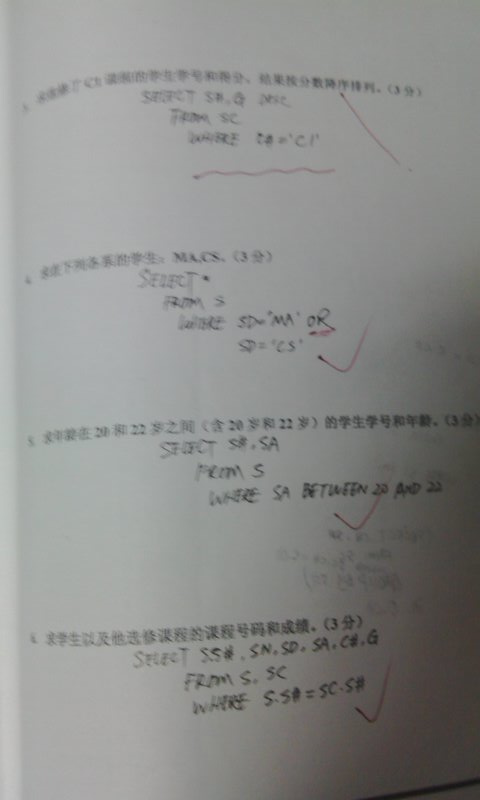 3. 求选修了 C1 课程的学生学号和得分，结果按分数降序排列。（3 分）
SELECT S#, G DESC
FROM SC
WHERE C#='C1'
4. 求在下列各系的学生：MA,CS。（3 分）
SELECT *
FROM S
WHERE SD='MA' OR
SD='CS'
5. 求年龄在 20 和 22 岁之间（含 20 岁和 22 岁）的学生学号和年龄。（3 分）
SELECT S#, SA
FROM S
WHERE SA BETWEEN 20 AND 22
6. 求学生以及他选修课程的课程号码和成绩。（3 分）
SELECT S.S#, SN, SD, SA, C#, G
FROM S, SC
WHERE S.S# = SC.S#